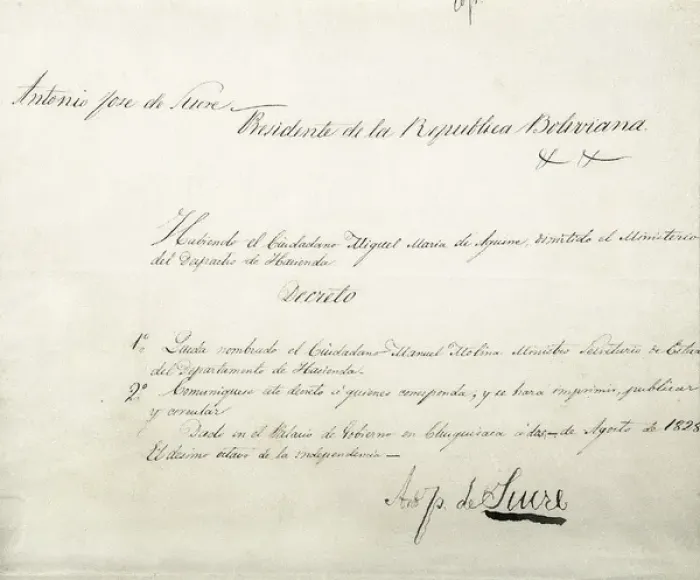 Antonio Jose de Sucre
Presidente de la Republica Boliviana.
Habiendo el Ciudadano Miguel Maria de Aguirre, dimitido el Ministerio
del Dspacho de Hasienda
Decreto
1º. Queda nombrado el Ciudadano Manuel Molina Ministro Secretario de
del Departamento de Hasienda.
2º. Comuniquese este decreto á quienes corresponda; y se hara imprimir, publicar
y circular
Dado en el Palacio de Gobierno en Chuquisaca á dos de Agosto de 1828
El desimo octavo de la independencia
de Sucre